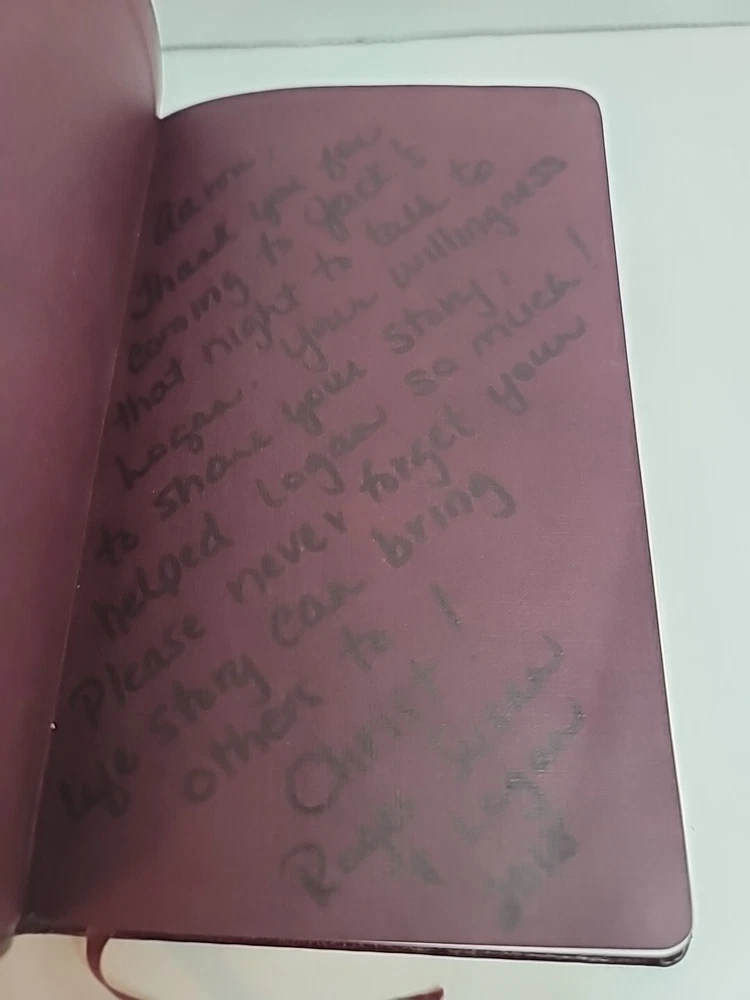 Aaron,
Thank you for
coming to Jack's
that night to talk to
Logan. Your willingness
to share your story,
helped Logan so much!
Please never forget your
life story can bring
others to
Christ!
Roger, Susan
& Logan
2018